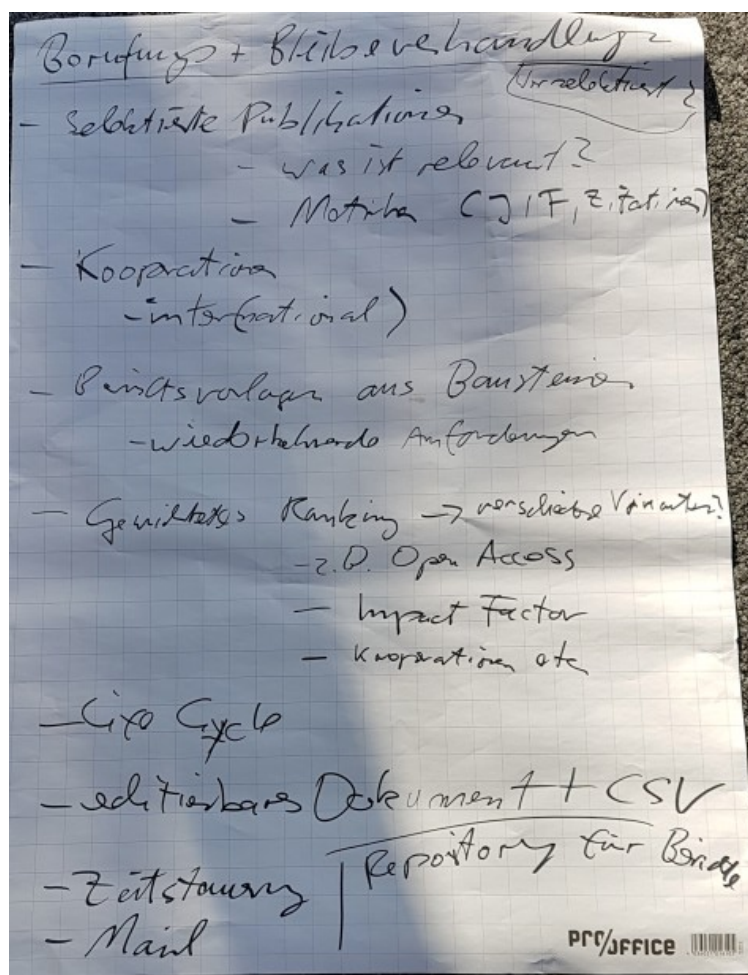 Berufungs + Bleibeverhandlungen
Vorselektiert?
- Selektierte Publikationen
- was ist relevant?
- Metriken (JIF, Zitationen)
- Kooperationen
- inter(national)
- Berichtsvorlagen aus Bausteinen
- wiederkehrende Anforderungen
- Gewichtetes Ranking → verschiedene Varianten?
- z.B. Open Access
- Impact Factor
- Kooperationen etc
- Life Cycle
- editierbares Dokument + CSV
Repository für Berichte
- Zeitsteuerung
- Mail
PRO/OFFICE